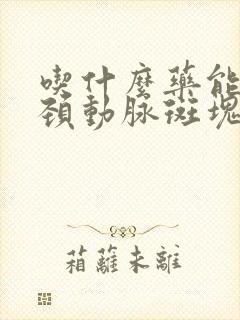 喫什麼藥能
頸動脈斑塊
箱蘿未離